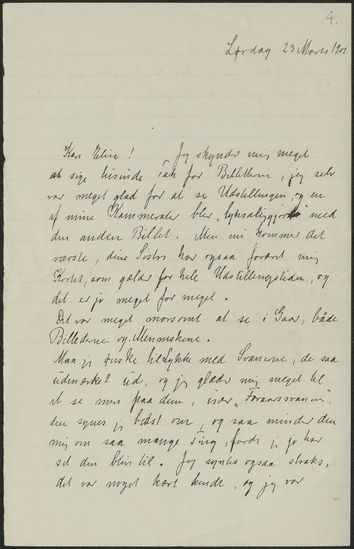 4.
Lørdag 23 Marts 1901.
Kære Elise! Jeg skynder mig meget
at sige tusinde Tak for Billetterne, jeg selv
var meget glad for at se Udstillingen, og en
af mine Kammerater blev "lyksaliggjort" med
den anden Billet. Men nu kommer det
værste, dine Søstre har ogsaa foræret mig
Kortet, som gælder for hele Udstillingstiden, og
det er jo meget for meget.
Det var meget morsomt at se i Gaar, både
Billederne og Menneskene.
Maa jeg ønske til Lykke med Svanerne, de saa
udmærket ud, og jeg glæder mig meget til
at se mere paa dem, især "Foraarssvanen",
den synes jeg bedst om, og saa minder den
mig om saa mange Ting, fordi jeg jo har
set den blive til. Jeg syntes ogsaa straks,
det var noget kært kendte, og jeg var